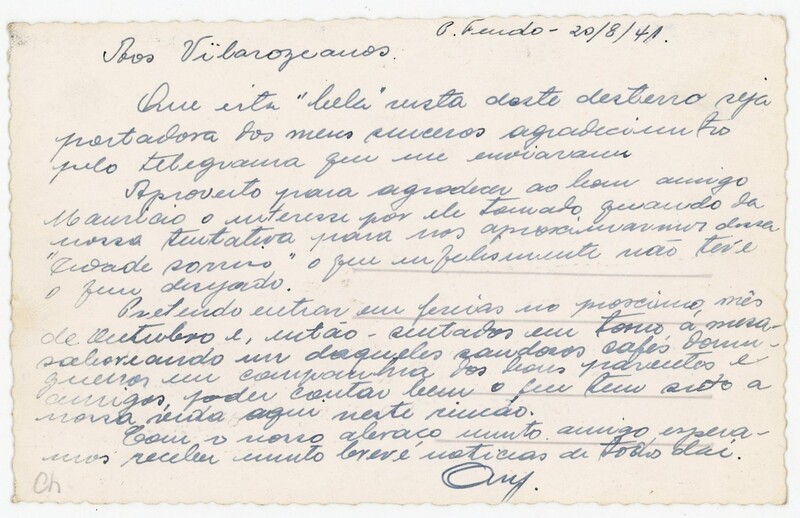 P. Fundo - 20/8/41.
Aos Vilarozeanos.
Que esta "bela" vista deste desterro seja
portadora dos meus sinceros agradecimento
pelo telegrama que me enviaram
Aproveito para agradecer ao bom amigo
Mauricio o interesse por ele tomado, quando da
nossa tentativa para nos aproximarmos dessa
"Cidade sorriso" o que infelismente não teve
o fim desejado.
Pretendo entrar em ferias no proscimo mês
de Outubro e, então - sentados em torno á mesa -
saboreando um daqueles saudosos cafés domin-
gueiros em companhia dos bons parentes e
amigos, poder contar bem o que tem sido a
nossa vida aqui neste rincão.
Com o nosso abraço muito amigo espera-
mos receber muito breve noticias de todo dai.
Ch